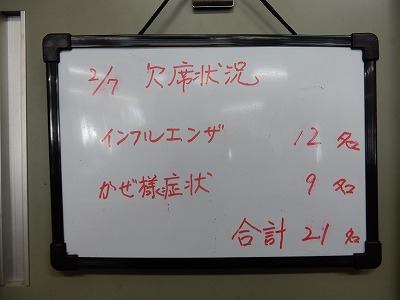 2/7 欠席状況
インフルエンザ 12名
かぜ様症状 9名
合計 21名